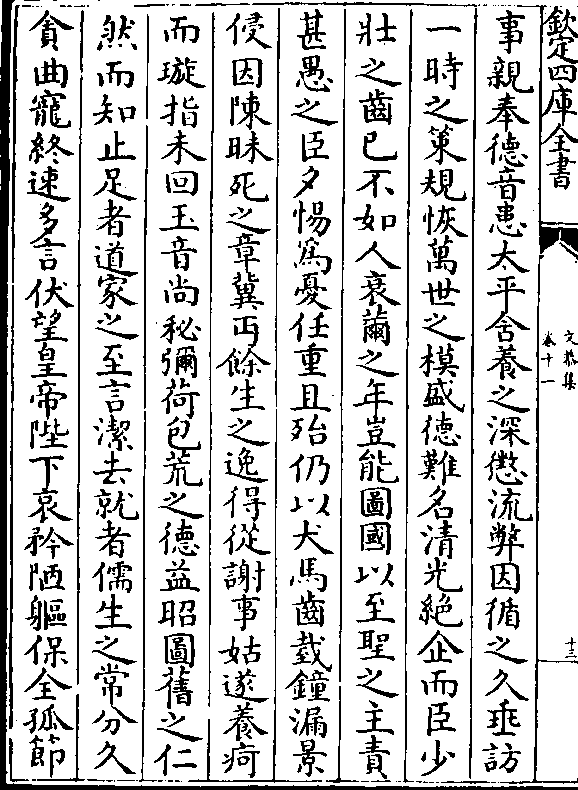 欽定四庫全書
文恭集
卷十一
十三
事親奉德音患太平舍養之深懲流弊因循之久垂訪
一時之策規恢萬世之模盛德難名清光絶企而臣少
壯之齒已不如人衰薾之年豈能圖國以至聖之主責
甚愚之臣夕惕爲憂任重且殆仍以犬馬齒臷鐘漏景
侵因陳昧死之章冀丐餘生之逸得從謝事姑遂養疴
而璇指未回玉音尚秘彌荷包荒之德益昭圖舊之仁
然而知止足者道家之至言潔去就者儒生之常分久
貪曲寵終速多言伏望皇帝陛下哀矜陋軀保全孤節